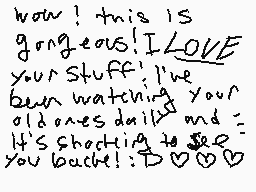 wow! this is
gorgeous! I LOVE
your stuff! I've
been watching your
old ones daily and
It's shocking to see
you back! :D ♡♡♡